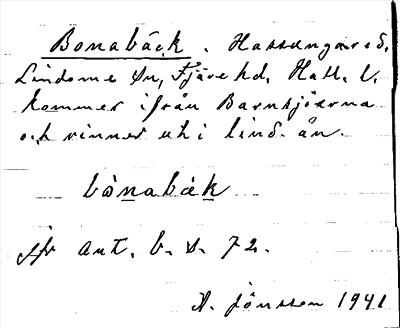 Bonabäck. Hassungared,
Lindome sn, Fjäre hd, Hall. l.
kommer ifrån Barnsjöarna
och rinner ut i lind. ån.
bònabäk
jfr ant. b. s. 72.
A. Jönsson 1941